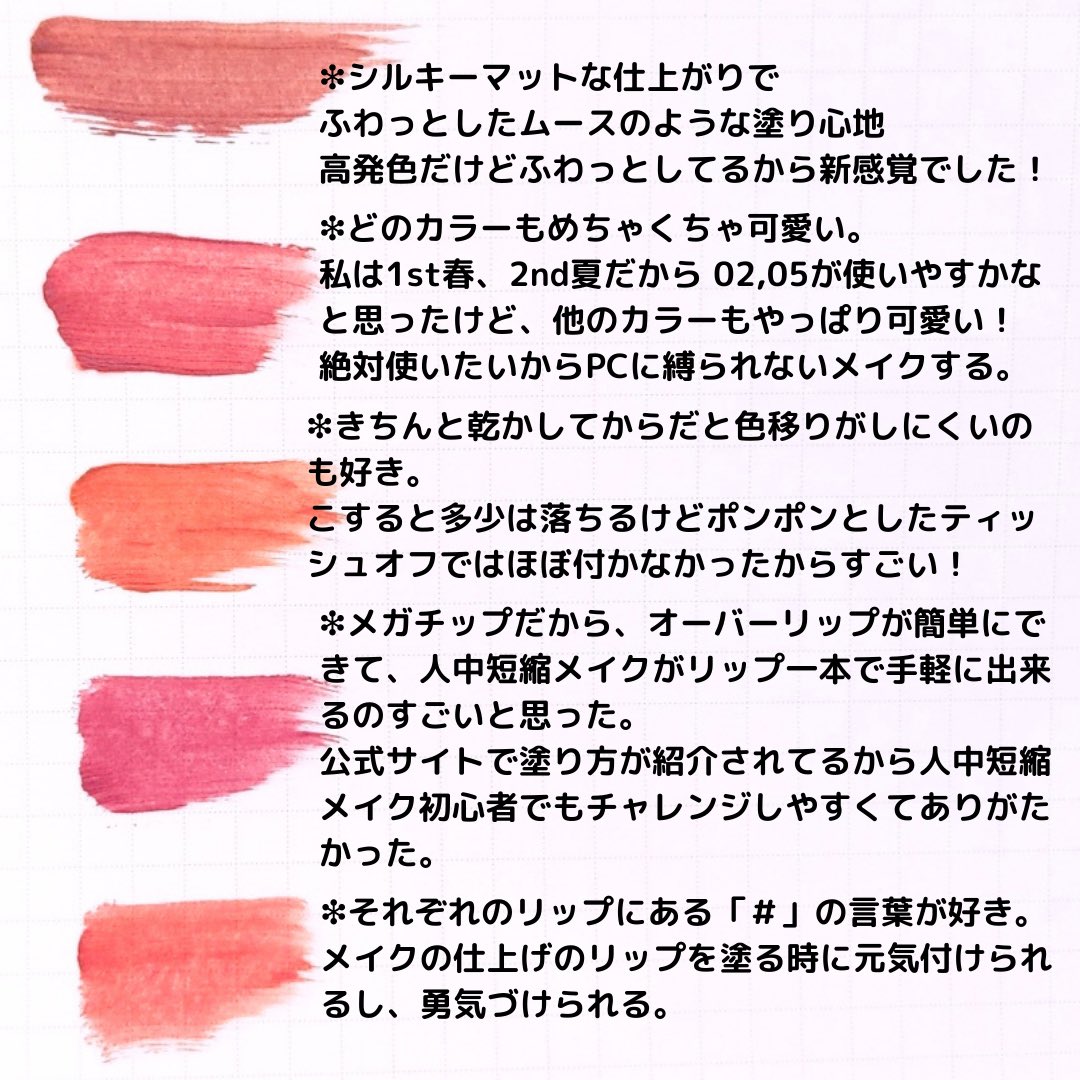 ❇シルキーマットな仕上がりで
ふわっとしたムースのような塗り心地
高発色だけどふわっとしてるから新感覚でした！
❇どのカラーもめちゃくちゃ可愛い。
私は1st春、2nd夏だから 02,05が使いやすかな
と思ったけど、他のカラーもやっぱり可愛い！
絶対使いたいからPCに縛られないメイクする。
❇きちんと乾かしてからだと色移りがしにくいの
も好き。
こすると多少は落ちるけどポンポンとしたティッ
シュオフではほぼ付かなかったからすごい！
❇メガチップだから、オーバーリップが簡単にで
きて、人中短縮メイクがリップ一本で手軽に出来
るのすごいと思った。
公式サイトで塗り方が紹介されてるから人中短縮
メイク初心者でもチャレンジしやすくてありがた
かった。
❇それぞれのリップにある「＃」の言葉が好き。
メイクの仕上げのリップを塗る時に元気付けられ
るし、勇気づけられる。